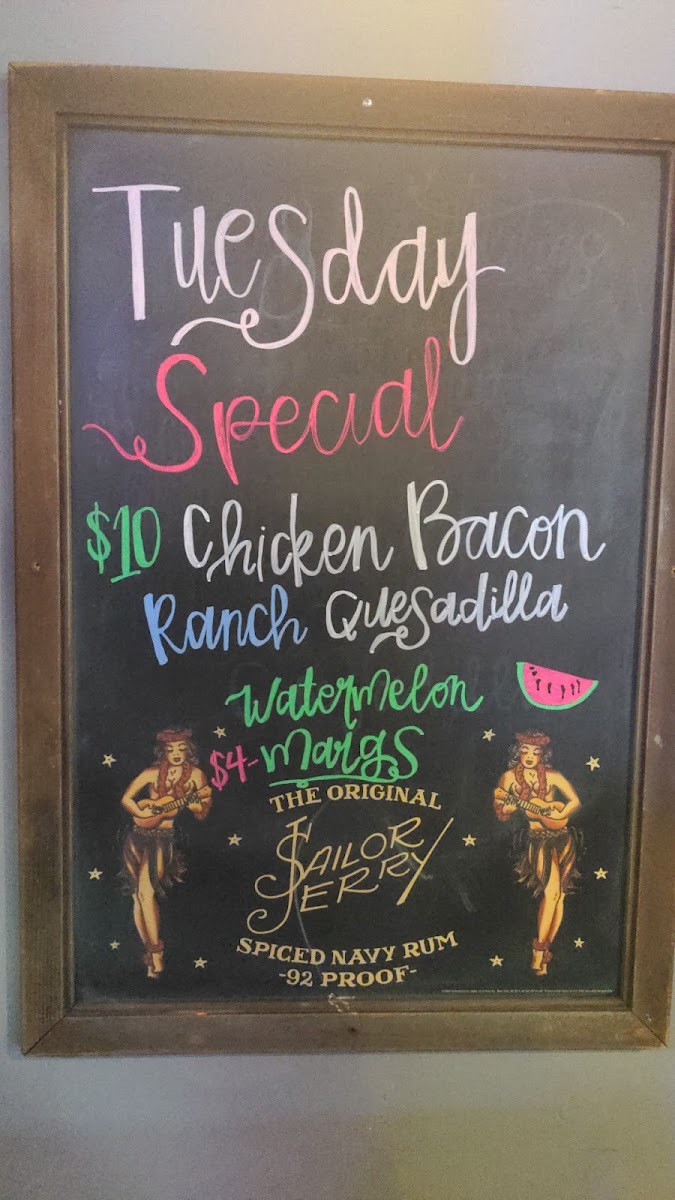 Tuesday
Special
$10 Chicken Bacon
Ranch Quesadilla
Watermelon
$4- Margs
THE ORIGINAL
SAILOR
JERRY
SPICED NAVY RUM
-92 PROOF-